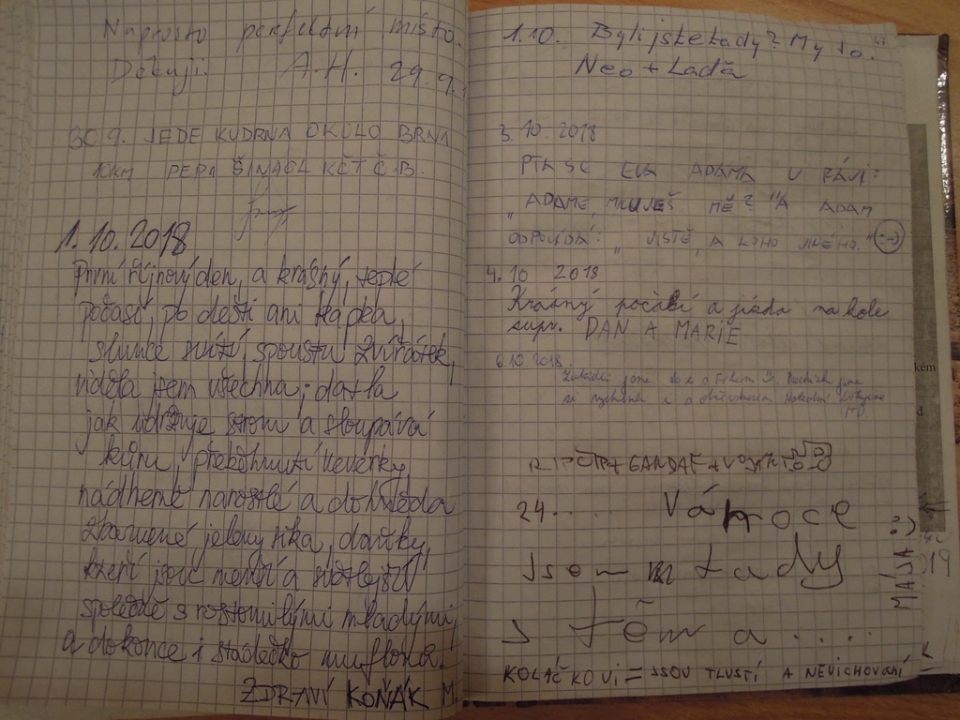 Naprosto perfektní místo.
Děkuji. A.H. 29.9.
30.9. JEDE KUDRNA OKOLO BRNA
10KM PEPA
1.10.2018
První říjnový den, a krásný, teplé
počasí, po dešti ani kapka,
slunce svítí, spoustu zvířátek,
viděla jsem všechna; datla
jak udržuje strom a sloupává
kůru, přeběhnutí veverky,
nádherně narostlé a dohněda
zbarvené jeleny sika, daňky,
kteří jsou menší a světlejší
společně s roztomilými mladými,
a dokonce i stádečko muflonů.
ZDRAVÍ KOŇÁK M.
1.10. Byli jste tady? My jo.
Neo + Lada
3.10.2018
PTÁ SE EVA ADAMA V RÁJI:
"ADAME, MILUJEŠ MĚ?" A ADAM
ODPOVÍDÁ: "JISTĚ, A KOHO JINÉHO." :-)
4.10 2018
Krásný počásí a jízda na kole
supr. DAN A MARIE
6.10 2018.
24..... Vánoce
Jsem tady
s těm a .....
MÁJA :)
19
KOLÁČKOVI = JSOU TLUSTÍ A NEVICHOVANÍ
kém